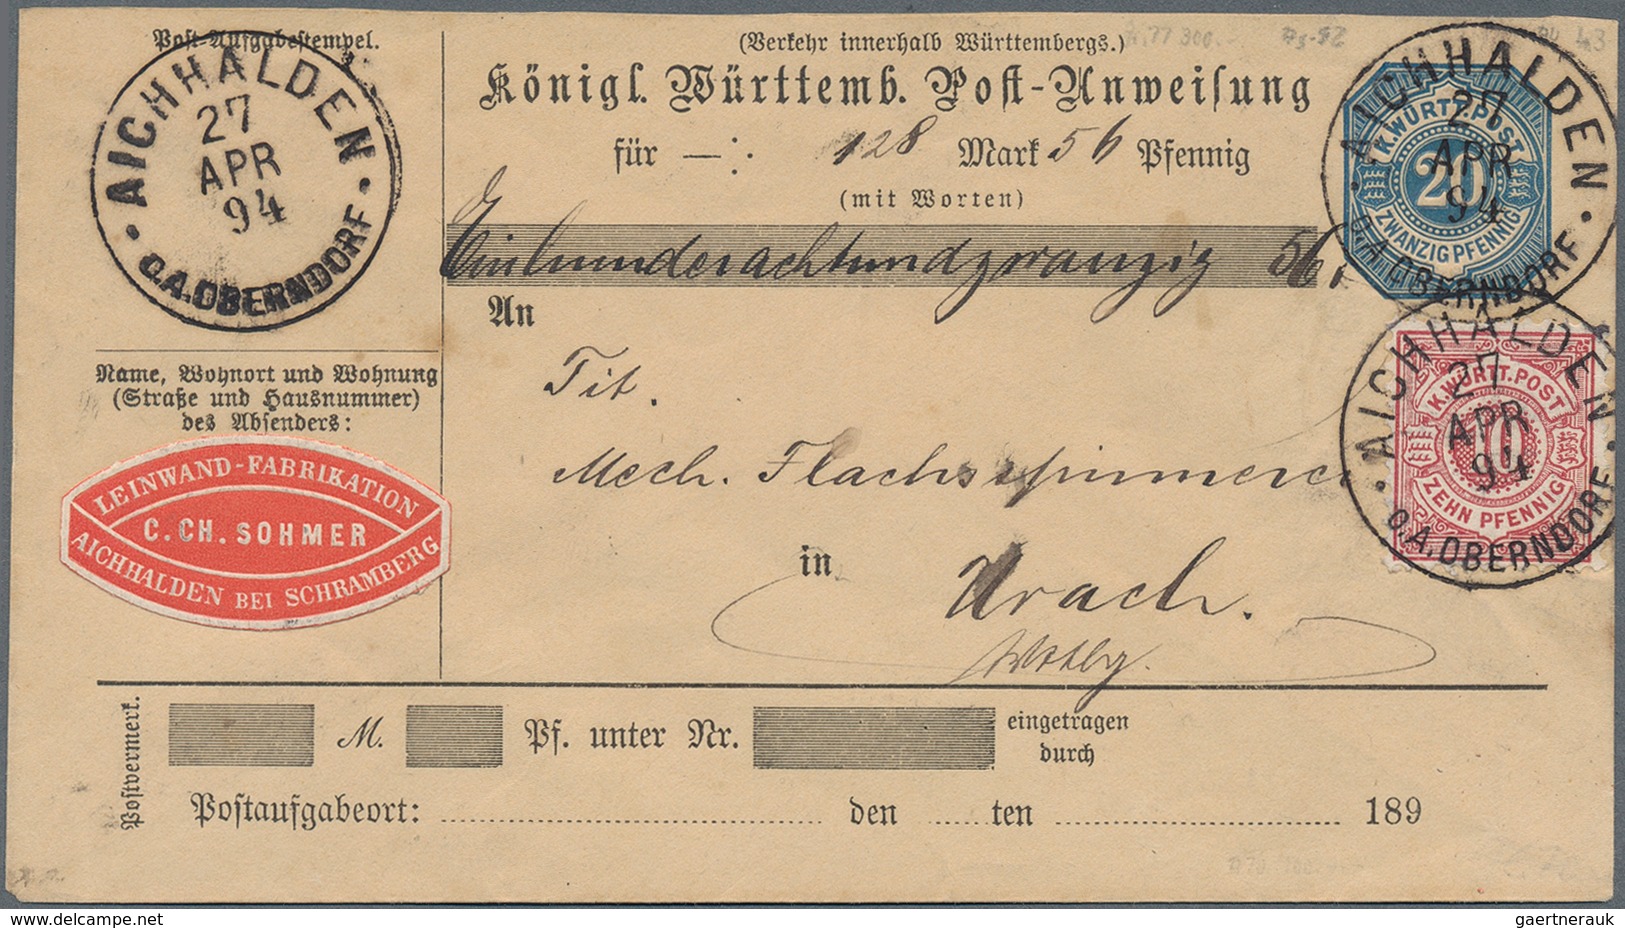 Post-Aufgabestempel.
AICHHALDEN
27
APR
94
O.A. OBERNDORF
(Verkehr innerhalb Württembergs.)
Königl. Württemb. Post-Anweisung
für —: 128 Mark 56 Pfennig
(mit Worten)
Einhunderachtundzwanzig 56,
An
Tit.
Mech. Flachsspinnerei
in Urach.
Wttbg.
AICHHALDEN
27
APR
94
O.A. OBERNDORF
K. WÜRTT. POST
20
ZWANZIG PFENNIG
AICHHALDEN
27
APR
94
O.A. OBERNDORF
K. WÜRTT. POST
10
ZEHN PFENNIG
Name, Wohnort und Wohnung
(Straße und Hausnummer)
des Absenders:
LEINWAND-FABRIKATION
C. CH. SOHMER
AICHHALDEN BEI SCHRAMBERG
Postvermerk.
M. Pf. unter Nr. eingetragen
durch
Postaufgabeort: den ten 189
delcampe.net
gaertnerauk